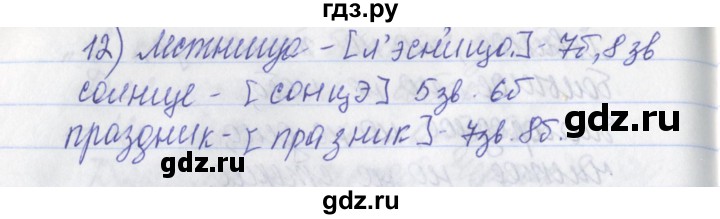 гдз.ру
12) Лестница - [л'эсн'ица] - 7б, 8 зв
солнце - [сонцэ] 5зв. 6б
праздник - [празник] - 7зв. 8б.
gdz.ru
gdz.ru
gdz.ru